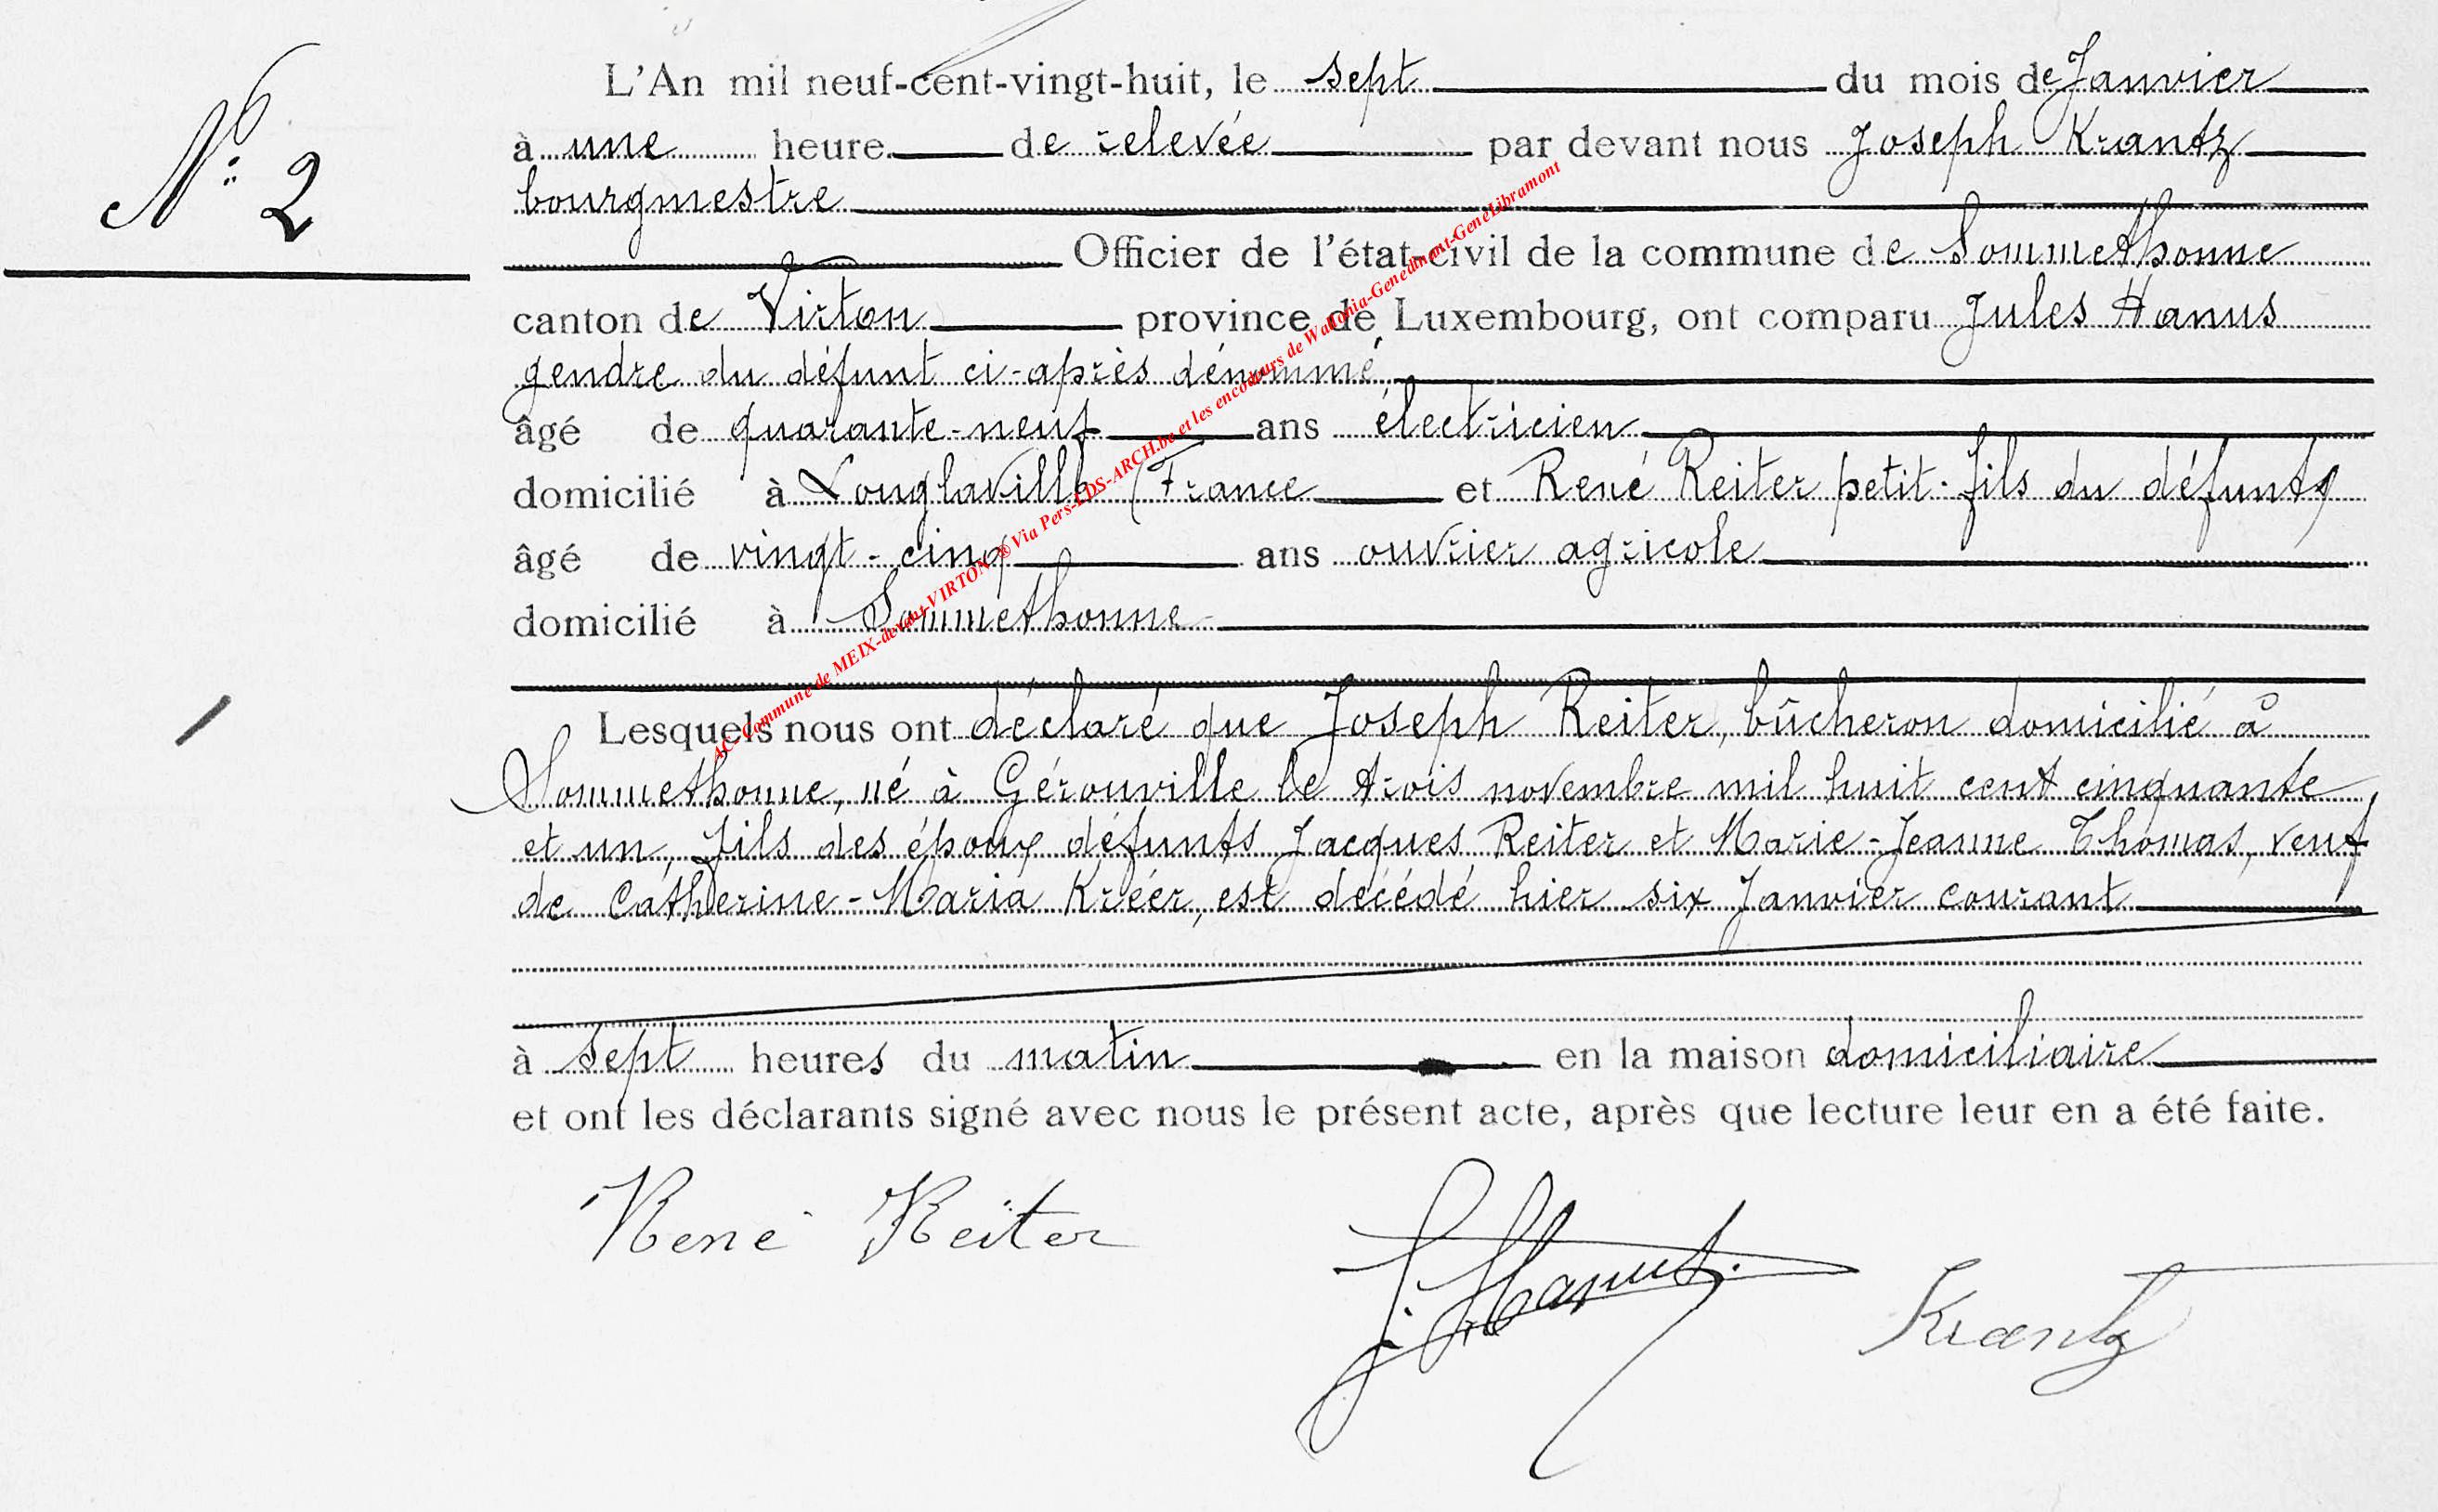 N° 2
L'An mil neuf-cent-vingt-huit, le sept du mois de Janvier
à une heure de relevée par devant nous Joseph Krantz
bourgmestre
Officier de l'état-civil de la commune de Sommethonne
canton de Virton province de Luxembourg, ont comparu Jules Hanus
gendre du défunt ci-après dénommé
âgé de quarante-neuf ans électricien
domicilié à Longlaville (France et René Reiter petit-fils du défunt
âgé de vingt-cinq ans ouvrier agricole
domicilié à Sommethonne
Lesquels nous ont déclaré que Joseph Reiter, bûcheron domicilié à
Sommethonne, né à Gérouville le trois novembre mil huit cent cinquante
et un, fils des époux défunts Jacques Reiter et Marie-Jeanne Thomas, veuf
de Cátherine-Maria Kréer, est décédé hier six Janvier courant
à sept heures du matin en la maison domiciliaire
et ont les déclarants signé avec nous le présent acte, après que lecture leur en a été faite.
René Reiter J. Hanus. Krantz
AC-Commune de MEIX-devant-VIRTON @ Via Pers-LDS-ARCH.be et les encodeurs de Wallonia-Genedinant-GeneLibramont